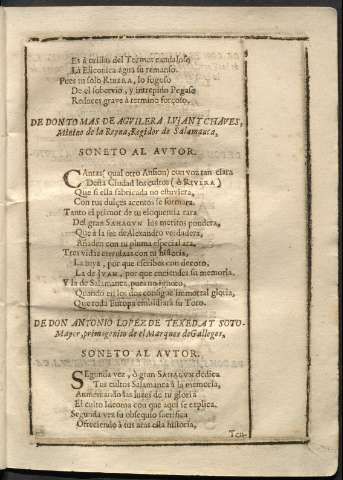 Es á orillas del Tormes caudaloso,
La Eliconica agua su remanso.
Pues tu solo RIBERA, lo fogoso
De el sobervio, y intrepido Pegaso
Reduces grave à termino forçoso.
DE DON TOMAS DE AGVILERA LVIAN Y CHAVES,
Menino de la Reyna, Regidor de Salamanca,
SONETO AL AVTOR.
CAntas (qual otro Anfion) con voz tan clara
Desta Ciudad los cultos (ò RIVERA)
Que si ella fabricada no estuviera,
Con tus dulçes acentos se formara.
Tanto el primor de tu eloquencia rara
Del gran SAHAGVN los meritos pondera,
Que à la fee de Alexandro verdadera,
Añaden con tu pluma especial ara.
Tres vidas eternizas con tu historia,
La tuya, por que escribes con decoro,
La de IVAN, por que enciendes su memoria.
Y la de Salamanca, pues no ignoro,
Quando en los dos consigue immortal gloria,
Que toda Europa embidiarà su Toro.
DE DON ANTONIO LOPEZ DE TEXEDA Y SOTO-
Mayor, primogenito de el Marques de Gallegos,
SONETO AL AVTOR.
SEgunda vez, ò gran SAHAGVN dedica
Tus cultos Salamanca à la memoria,
Aumentando las luzes de tu gloria
El culto idioma con que aqui se explica.
Segunda vez su obsequio sacrifica
Ofreciendo à tus aras esta historia,
Ten-